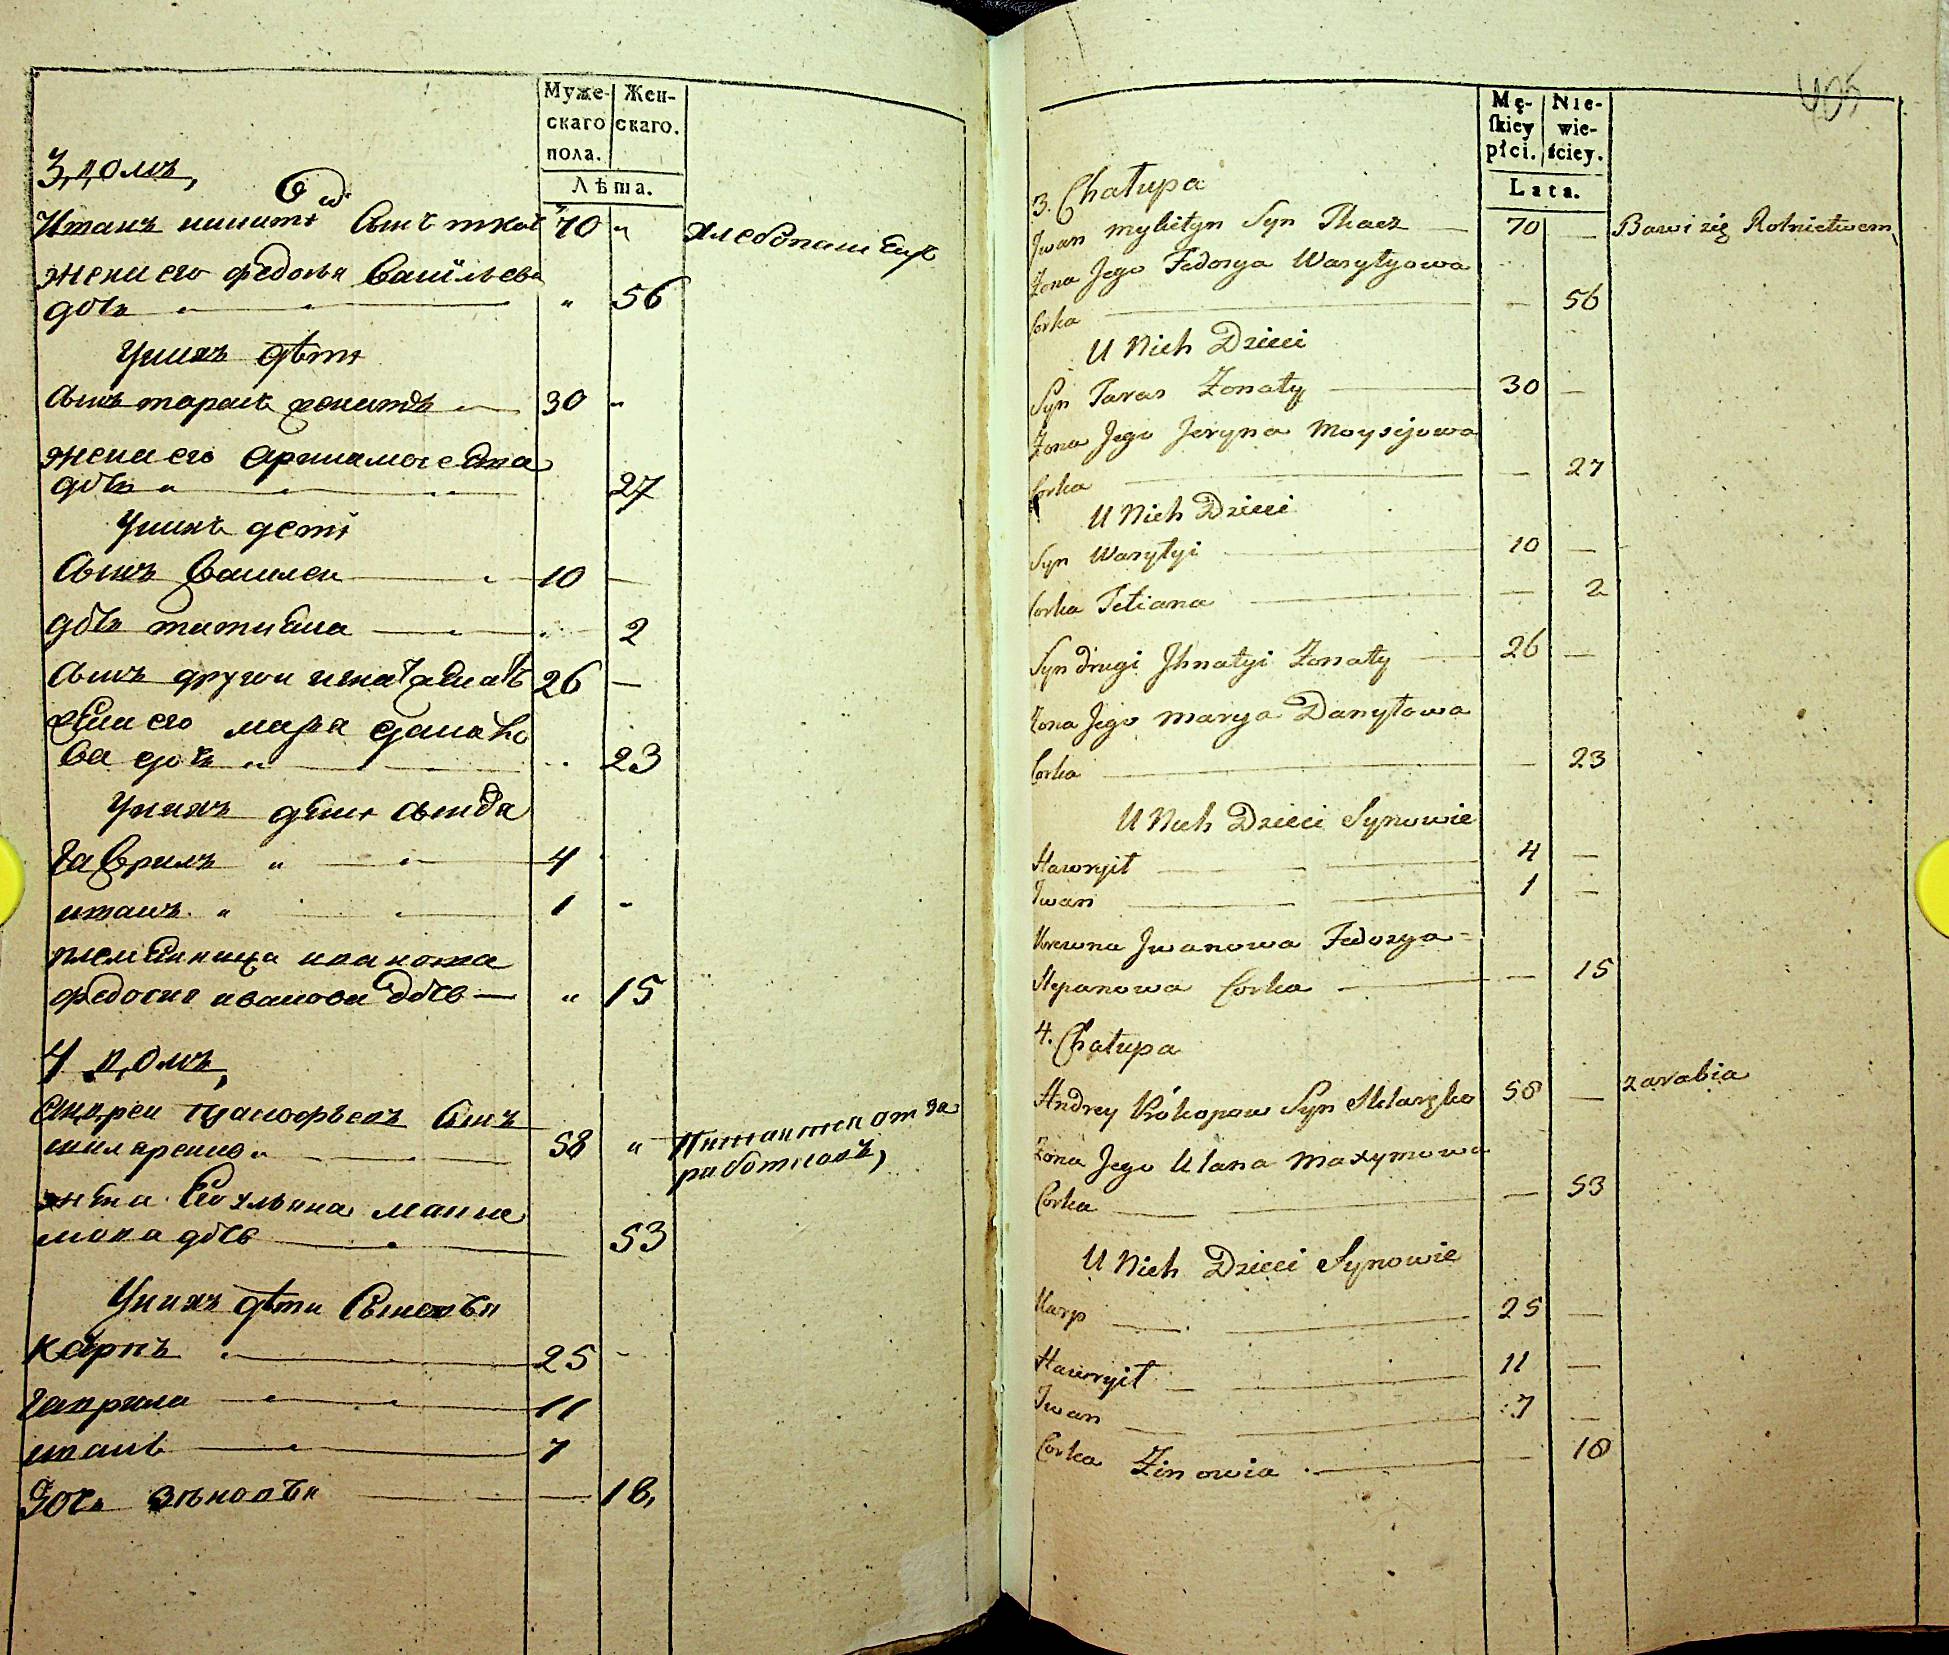 Муже-
скаго
пола.
Жен-
скаго.
Лѣта.
3, домъ,
Иванъ никити Сынъ ткач 70 "
Хлебопашець
жена его федосья Василева
дочь " 56
Унихъ дѣти
Сынъ тарасъ женатъ 30 "
жена его
дочь 27
Унихъ дети
Сынъ Василей 10 —
дочь татиена 2
Сынъ другой игнат женатъ 26 —
жена его марья данило
ва дочъ 23
Унихъ дети
Гаврилъ " 4
иванъ. " 1 -
племенница иванова
федосия иванова дочь — " 15
4 домъ,
Андреи Сынъ
шкляренко 58 "
Питается от за
работковъ,
жена Его ульяна макси
мова дочь 53
Унихъ дѣти Сыновья
Карпъ 25 -
Гаврила 11
иванъ 7
Дочь зѣновья 18,
Mę-
ſkiey
płci.
Nie-
wie-
ściey.
Lata.
405
3. Chałupa
Iwan mykityn Syn Tkacz 70 — Bawi się Rolnictwem
Żona Jego Fedosya Wasylyowa
Corka — 56
U Nich Dzieci
Syn Taras Żonaty 30 —
Żona Jego Jeryna Moysijowa
Corka — 27
U Nich Dzieci
Syn Wasylyi 10 —
Corka Tetiana — 2
Syn drugi Ihnatyi Żonaty 26 —
Żona Jego Marya Danyłowa
Corka — 23
U Nich Dzieci Synowie
Hawryił 4 —
Iwan 1 —
Krewna Iwanowa Fedosya
Stepanowa Corka — 15
4. Chałupa
Andrey Prokopow Syn Szklarzko 58 — zarabia
Żona Jego Ulana Maxymowa
Corka — 53
U Nich Dzieci Synowie
Karp 25 —
Hawryił 11 —
Iwan 7 —
Corka Zinowia - 18